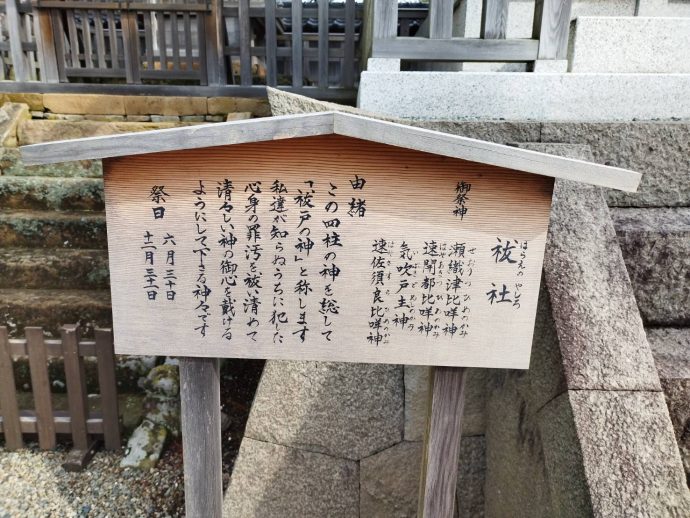 祓社
はらえのやしろ
御祭神
瀬織津比咩神
せおりつひめのかみ
速開都比咩神
はやあきつひめのかみ
氣吹戸主神
いぶきどぬしのかみ
速佐須良比咩神
はやさすらひめのかみ
由緒
この四柱の神を総して
「祓戸の神」と称します
私達が知らぬうちに犯した
心身の罪汚を祓清めて
清々しい神の御心を戴ける
ようにして下さる神々です
祭日
六月三十日
十二月三十一日